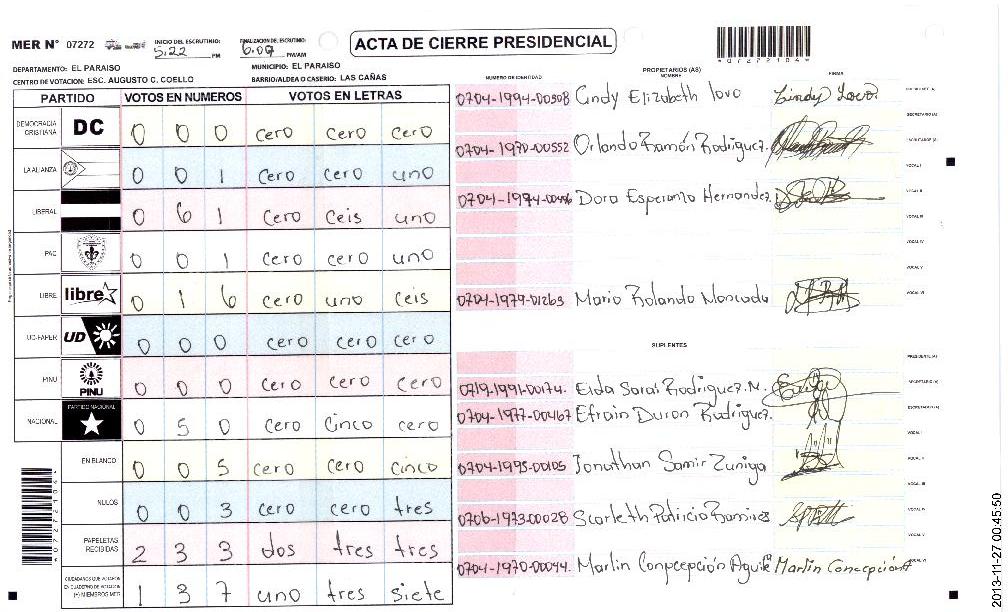 MER N° 07272
INICIO DEL ESCRUTINIO: 5:22 PM
FINALIZACION DEL ESCRUTINIO: 6:09 PM/AM
ACTA DE CIERRE PRESIDENCIAL
*07272104*
DEPARTAMENTO: EL PARAISO
MUNICIPIO: EL PARAISO
CENTRO DE VOTACION: ESC. AUGUSTO C. COELLO
BARRIO/ALDEA O CASERIO: LAS CAÑAS
PARTIDO VOTOS EN NUMEROS VOTOS EN LETRAS
DEMOCRACIA CRISTIANA DC 0 0 0 cero cero cero
LA ALIANZA 0 0 1 cero cero uno
LIBERAL 0 6 1 cero ceis uno
PAC 0 0 1 cero cero uno
LIBRE libre 0 1 6 cero uno ceis
UD-FAPER UD 0 0 0 cero cero cero
PINU PINU 0 0 0 cero cero cero
NACIONAL PARTIDO NACIONAL 0 5 0 cero cinco cero
EN BLANCO 0 0 5 cero cero cinco
NULOS 0 0 3 cero cero tres
PAPELETAS RECIBIDAS 2 3 3 dos tres tres
CIUDADANOS QUE VOTARON EN CUADERNO DE VOTACION (+) MIEMBROS MER 1 3 7 uno tres siete
NUMERO DE IDENTIDAD PROPIETARIOS (AS) NOMBRE FIRMA
0704-1994-00508 Cindy Elizabeth Lovo Cindy Lovo.
0704-1970-00552 Orlando Ramón Rodriguez.
0704-1974-00496 Dora Esperanza Hernandez.
0704-1979-01263 Mario Rolando Moncada
SUPLENTES
0719-1991-00174. Elda Sarai Rodriguez.M.
0704-1977-00467 Efrain Duron Rodriguez.
0704-1995-00105 Jonathan Samir Zuniga
0706-1973-00028 Scarleth Patricia Ramirez
0704-1970-00044. Marlin Conpcepción Aguile Martin Concepción
PRESIDENTE (A)
SECRETARIO (A)
ESCRUTADOR (A)
VOCAL I
VOCAL II
VOCAL III
VOCAL IV
VOCAL V
VOCAL VI
2013-11-27 00:45:50